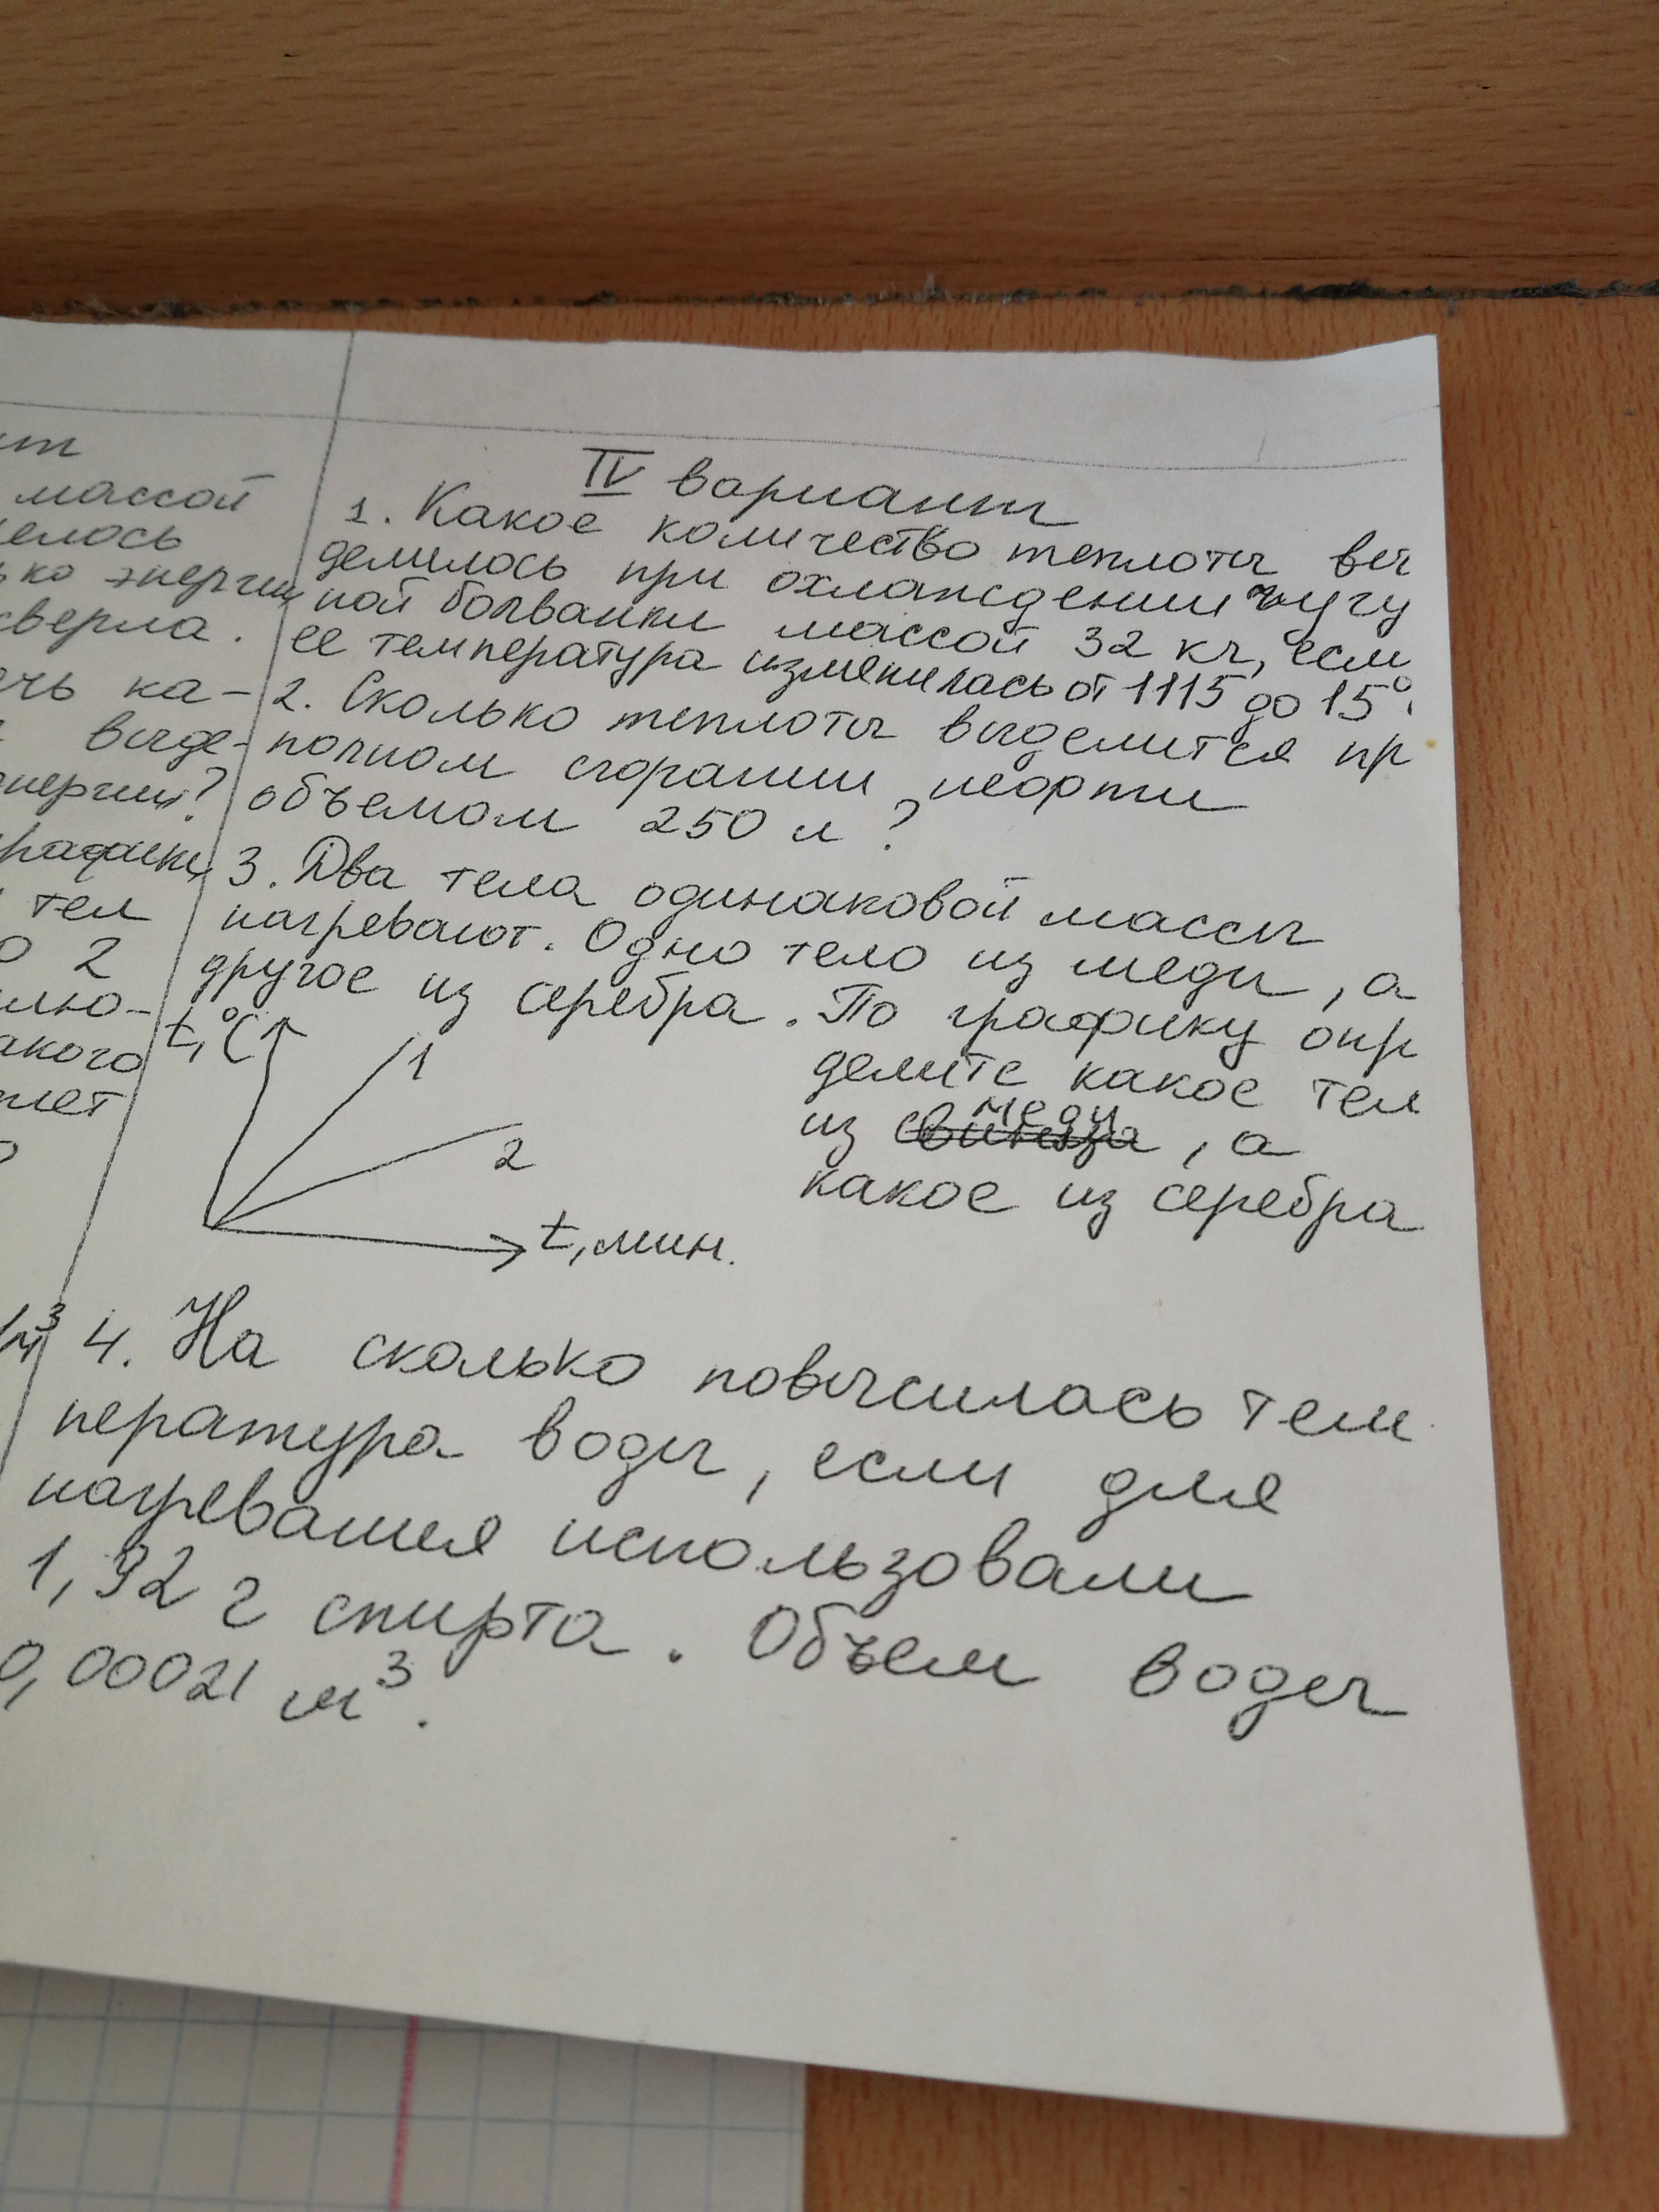 IV вариант
1. Какое количество теплоты вы
делилось при охлаждении чугу
ной болванки массой 32 кг, если
ее температура изменилась от 1115 до 15°
2. Сколько теплоты выделится пр
полном сгорании нефти
объемом 250 л?
3. Два тела одинаковой массы
нагревают. Одно тело из меди, а
другое из серебра. По графику опр
t,°C
1
2
t, мин.
делите какое тел
из меди, а
какое из серебра
4. На сколько повысилась тем
пература воды, если для
нагревания использовали
1,92 г спирта. Объем воды
0,00021 м³.
массой
елось
ко энергии
сверла.
ечь ка-
выде-
энергии?
графики
тел
2
лю-
акого
м³